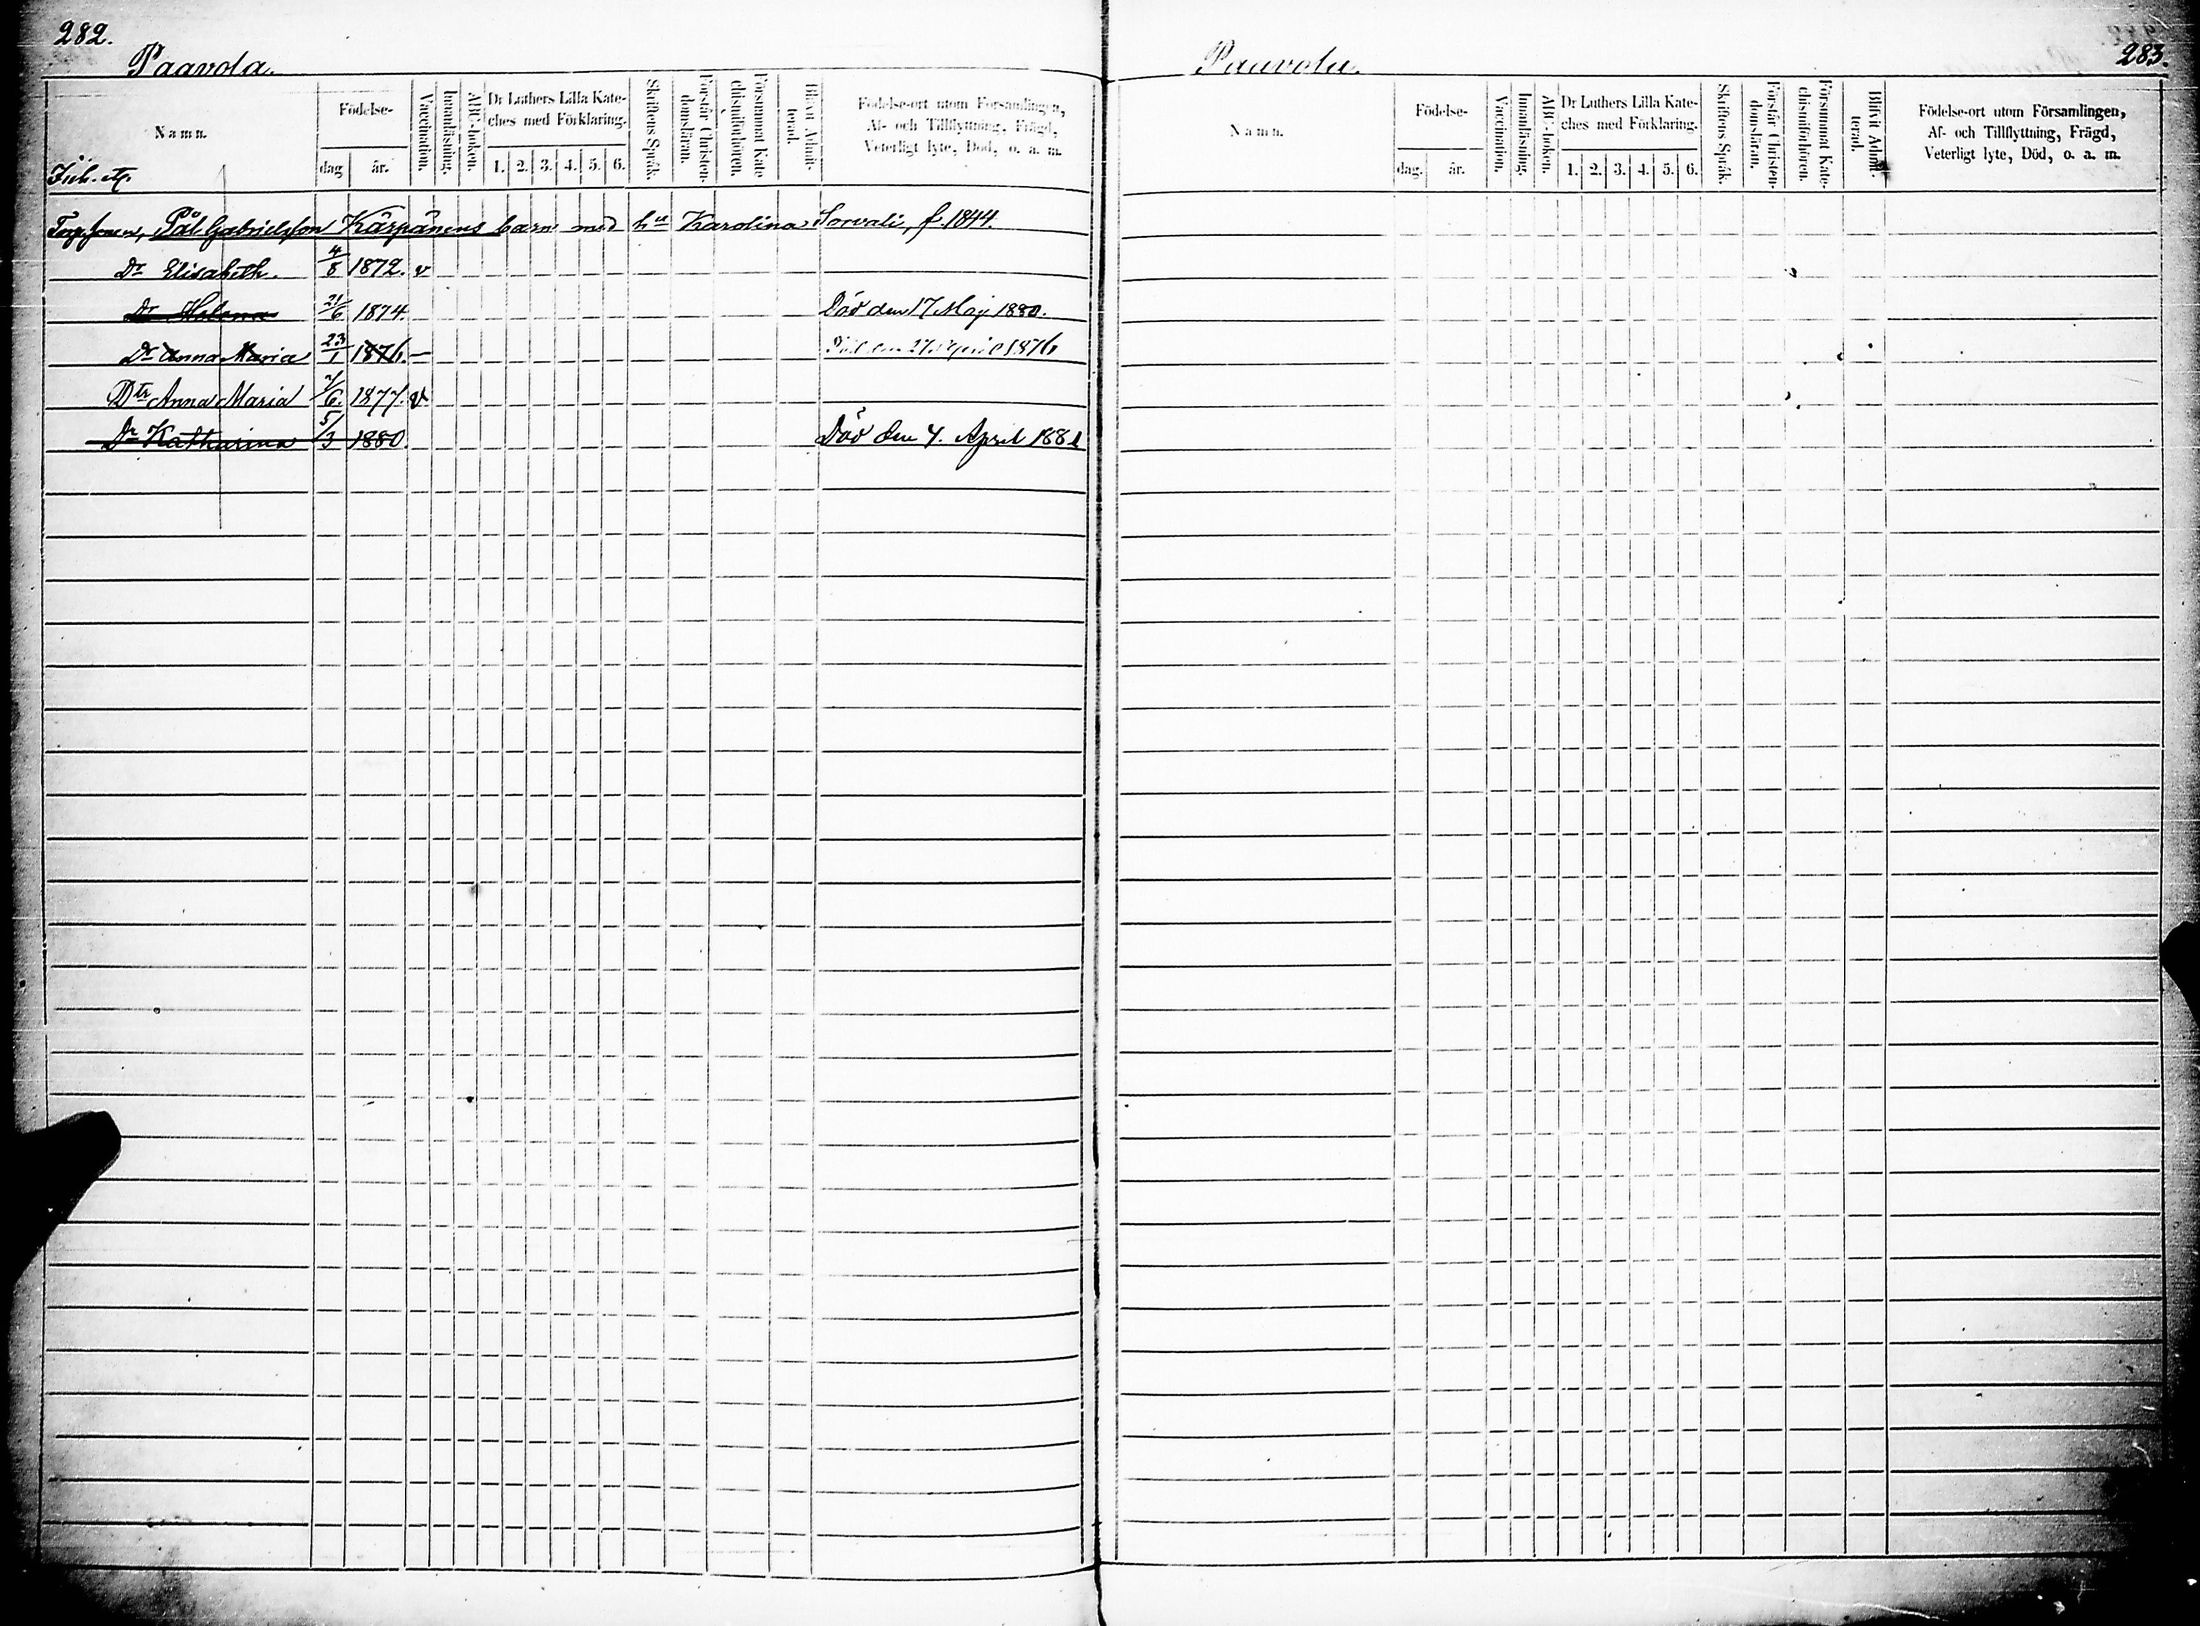 282.
Paavola.
Namn.
Födelse-
dag
år.
Vaccination.
Innanläsning.
ABC-boken.
Dr Luthers Lilla Kate-
ches med Förklaring.
1. 2. 3. 4. 5. 6.
Skriftens Språk.
Förstår Christen-
domsläran.
Försummat Kate
chismiförhören.
Blifvit Admit-
terad.
Födelse-ort utom Församlingen,
Af- och Tillflyttning, Frägd,
Veterligt lyte, Död, o. a. m.
Pål Gabrielsson Kärpänens barn med hu Karolina Sorvali, f. 1844.
Dr Elisabeth. 4/8 1872. v
Dr Helena 21/6 1874. Död den 17 Maj 1880.
Dr Anna Maria 23/1 1876. — Död den 27 April 1876
Dtr Anna Maria 7/6. 1877. v.
Dr Katharina 5/3 1880. Död den 4. April 1881
283.
Paavola.
Namn.
Födelse-
dag.
år.
Vaccination.
Innanläsning.
ABC-boken.
Dr Luthers Lilla Kate-
ches med Förklaring.
1. 2. 3. 4. 5. 6.
Skriftens Språk.
Förstår Christen-
domsläran.
Försummat Kate-
chismiförhören.
Blifvit Admit-
terad.
Födelse-ort utom Församlingen,
Af- och Tillflyttning, Frägd,
Veterligt lyte, Död, o. a. m.